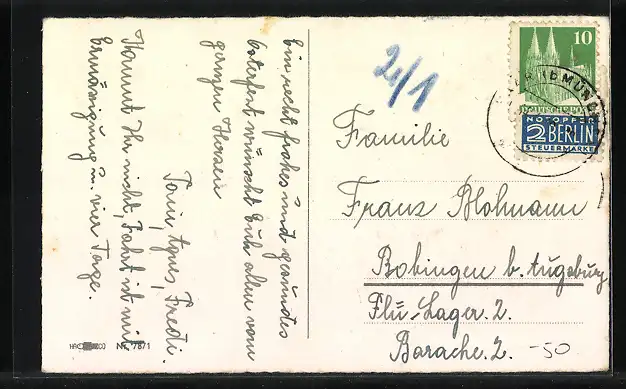 Ein recht frohes und gesundes
Osterfest wünscht Euch allen vom
ganzen Herzen
Toni, Agnes, Fredi.
Kommt Ihr nicht, Fahrt ist mit
Ermäßigung u. vier Tage.
HACO Nr. 7871
2/1
Familie
Franz Blohmann
Bobingen b. Augsburg
Flü-Lager. 2.
Barache. 2.
-50
10
NOTOPFER
2 BERLIN
STEUERMARKE